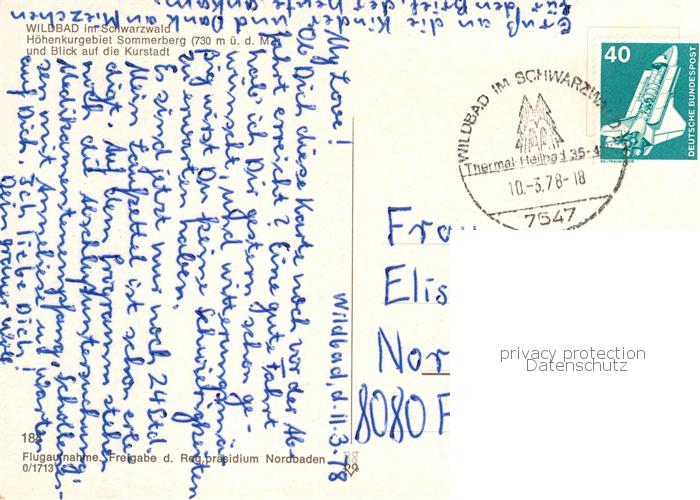 WILDBAD im Schwarzwald
Höhenkurgebiet Sommerberg (730 m ü. d. M.)
und Blick auf die Kurstadt
Wildbad, d. 11.3.78
My Love!
Ob Dich diese Karte noch vor der Ab-
fahrt erreicht? Eine gute Fahrt
hab ich Dir gestern schon ge-
wünscht, und witterungsmäßig
wirst Du keine Schwierigkeiten
zu erwarten haben.
Es sind jetzt nur noch 24 Std.
Mein Laufzettel ist schon erle-
digt. Auf dem Programm stehen
noch die Abschlußuntersuchung,
Medikamentenempfang,
mit Anneliese u. warten
auf Dich. Ich liebe Dich!
Dein
Gruß an die Kinder
und Dank an Miezchen
für den Brief, der heute ankam.
40
DEUTSCHE BUNDESPOST
WELTRAUMLABOR
WILDBAD IM SCHWARZWALD
Thermal-Heilbad 35-4
10.-3.78-18
7547
Frau
Elis
Nor
8080 F
privacy protection
Datenschutz
184
Flugaufnahme. Freigabe d. Reg.präsidium Nordbaden
0/1713